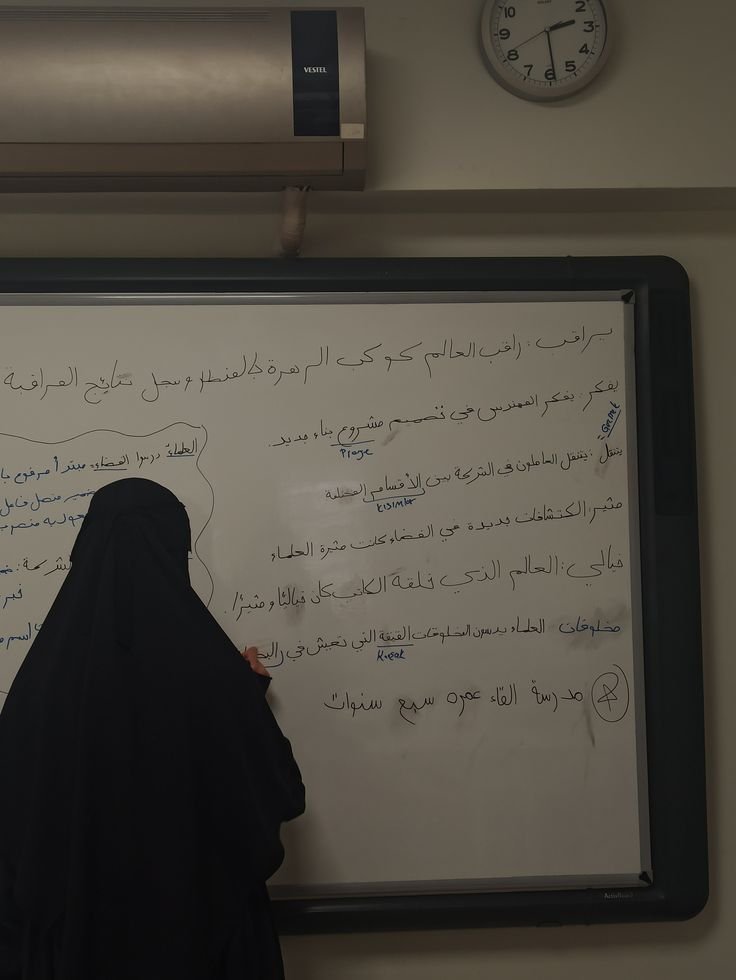 VESTEL
10 2 9 3 8 4 7 6 5
يراقب : راقب العالم كوكب الزهرة كالمنظر وسجل نتائج المراقبة
يفكر : يفكر المهندس في تصميم مشروع بناء جديد.
Proje
يتنقل : يتنقل العاملون في الشركة بين الأقسام المختلفة
Gezmek
kısımlar
مثير: اكتشافات جديدة في الفضاء كانت مثيرة العلماء
خيالي : العالم الذي خلقه الكاتب كان خياليًا و مثيرًا.
مخلوقات العلماء يدرسون المخلوقات التي تعيش في
مدرسة القاء عمره سبع سنوات
العلماء درسوا الفضاء: مبتدأ مرفوع
ضمير متصل فاعل
ActivBoard